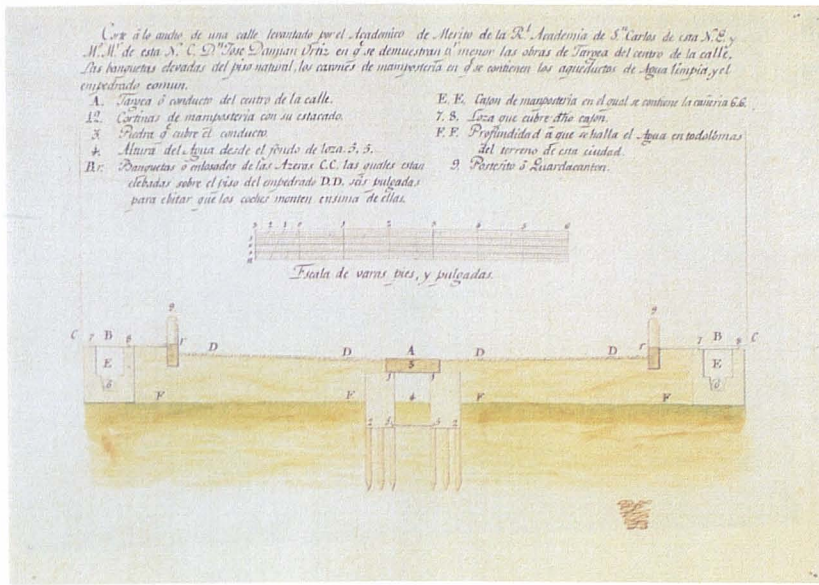 Corte á lo ancho de una calle levantado por el Academico de Merito de la R.l Academia de S.n Carlos de esta N. E. y
M.o M.r de esta N. C. D.n Jose Damian Ortiz en q.e se demuestran p.r menor las obras de Targea del centro de la calle,
Las banquetas elevadas del piso natural, los caxones de mamposteria en q.e se contienen los aqueductos de Agua limpia, y el
empedrado comun.
A. Targea ó conducto del centro de la calle.
1 2. Cortinas de mamposteria con su estacado.
3. Piedra q.e cubre el conducto
4. Altura del Agua desde el fondo de loza 5. 5.
B r. Banquetas ó enlosados de las Azeras C.C. las quales estan
elebadas sobre el piso del empedrado D.D. seis pulgadas
para ebitar que los coches monten ensima de ellas.
E. E. Cajon de manposteria en el qual se contiene la cañeria 6.6.
7. 8. Loza que cubre dho cajon.
F. F. Profundidad á que se halla el Agua en todo lo mas
del terreno de esta ciudad.
9. Postesito ó Guardacanton.
3 2 1 0 1 2 3 4 5 6
Escala de varas pies, y pulgadas.
9 9
C 7 B 8 r D D A D D r 7 B 8 C
E 3 E
6 6
F F 4 F F
2 5 5 2